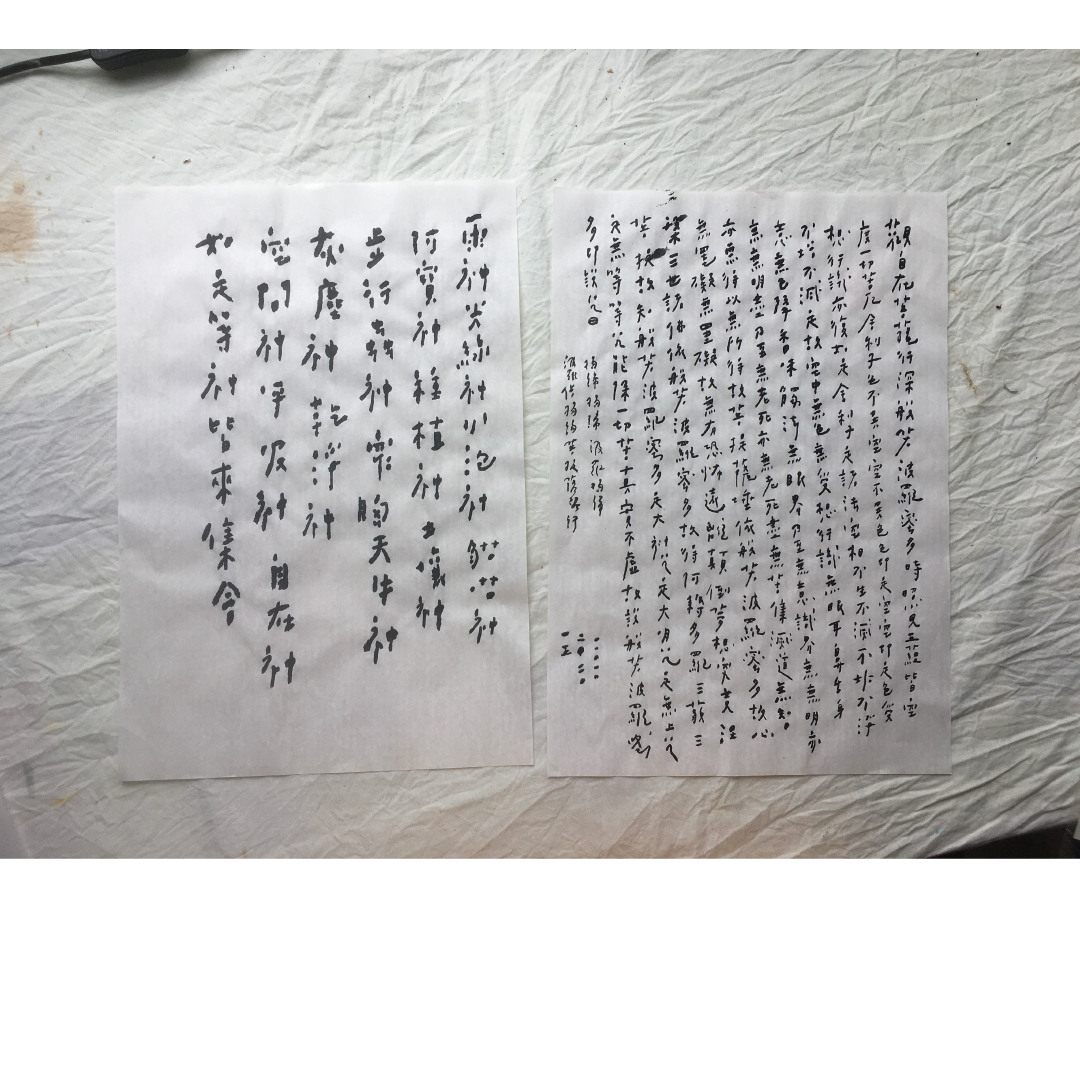 觀自在菩薩行深般若波羅蜜多時照見五蘊皆空
度一切苦厄舍利子色不異空空不異色色即是空空即是色受
想行識亦復如是舍利子是諸法空相不生不滅不垢不淨
不增不減是故空中無色無受想行識無眼耳鼻舌身
意無色聲香味觸法無眼界乃至無意識界無無明亦
無無明盡乃至無老死亦無老死盡無苦集滅道無知
亦無得以無所得故菩提薩埵依般若波羅蜜多故心
無罣礙無罣礙故無有恐怖遠離顛倒夢想究竟涅
槃三世諸佛依般若波羅蜜多故得阿耨多羅三藐三
菩提故知般若波羅蜜多是大神咒是大明咒是無上咒
是無等等咒能除一切苦真實不虛故說般若波羅蜜
多即說咒曰
揭諦揭諦波羅揭諦
波羅僧揭諦菩提薩婆訶
雨神炎神小泡神神
阿寶神種植神土壤神
並行去神胸天牛神
灰塵神乾淨神
空間神呼吸神自在神
如是等神皆來集會